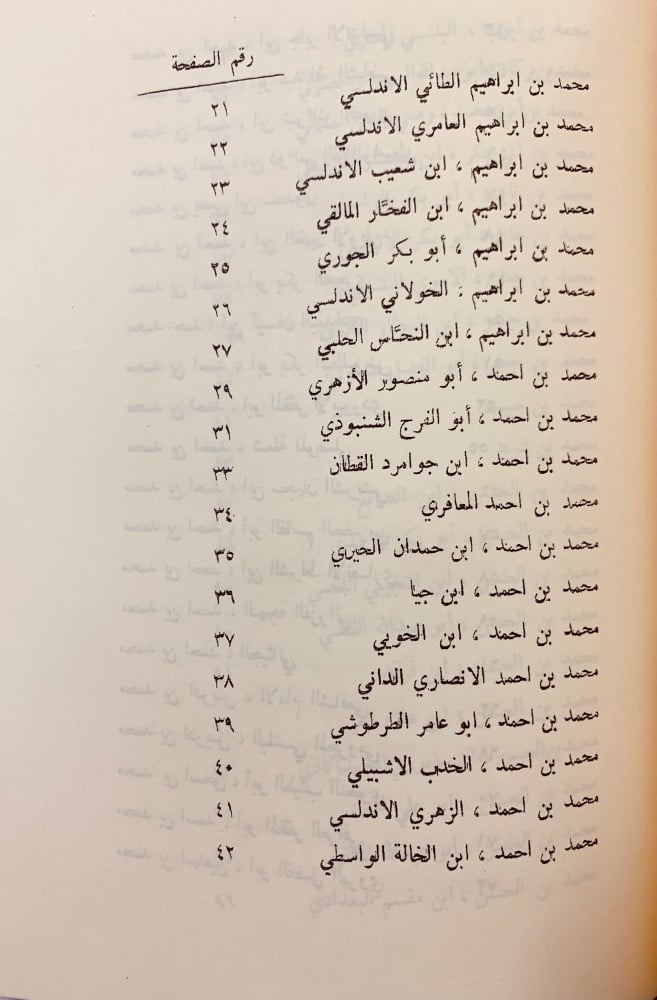 رقم الصفحة
محمد بن ابراهيم الطائي الاندلسي ٢١
محمد بن ابراهيم العامري الاندلسي ٢٢
محمد بن ابراهيم ، ابن شعيب الاندلسي ٢٣
محمد بن ابراهيم ، ابن الفخّار المالقي ٢٤
محمد بن ابراهيم ، أبو بكر الجوري ٢٥
محمد بن ابراهيم : الخولاني الاندلسي ٢٦
محمد بن ابراهيم ، ابن النحّاس الحلبي ٢٧
محمد بن احمد ، أبو منصور الأزهري ٢٩
محمد بن احمد ، أبو الفرج الشنبوذي ٣١
محمد بن احمد ، ابن جوامرد القطان ٣٣
محمد بن احمد المعافري ٣٤
محمد بن احمد ، ابن حمدان الحيري ٣٥
محمد بن احمد ، ابن جيا ٣٦
محمد بن احمد ، ابن الخويي ٣٧
محمد بن احمد الانصاري الداني ٣٨
محمد بن احمد ، ابو عامر الطرطوشي ٣٩
محمد بن احمد ، الخدب الاشبيلي ٤٠
محمد بن احمد ، الزهري الاندلسي ٤١
محمد بن احمد ، ابن الخالة الواسطي ٤٢